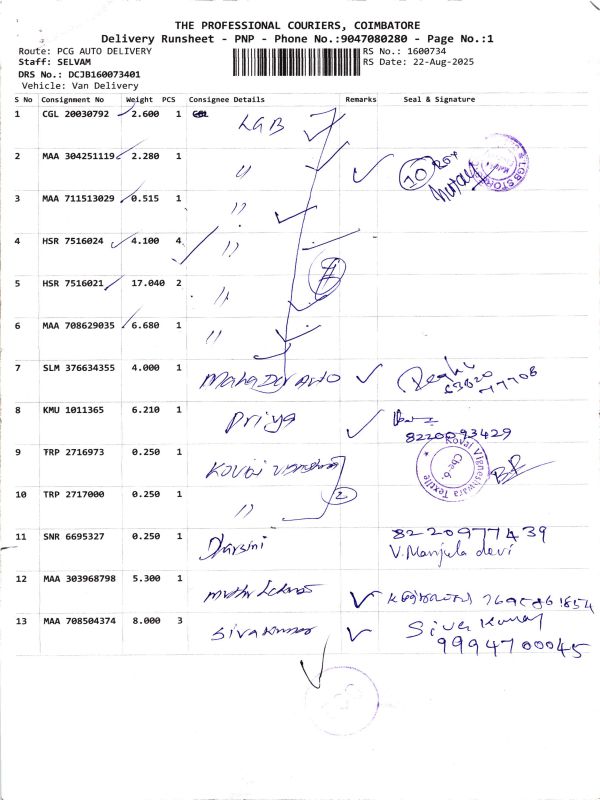 THE PROFESSIONAL COURIERS, COIMBATORE
Delivery Runsheet - PNP - Phone No.:9047080280 - Page No.:1
Route: PCG AUTO DELIVERY RS No.: 1600734
Staff: SELVAM RS Date: 22-Aug-2025
DRS No.: DCJB160073401
Vehicle: Van Delivery
S No Consignment No Weight PCS Consignee Details Remarks Seal & Signature
1 CGL 20030792 2.600 1 LGB
2 MAA 304251119 2.280 1 " 10 Box
3 MAA 711513029 0.515 1 "
4 HSR 7516024 4.100 4 "
5 HSR 7516021 17.040 2 "
6 MAA 708629035 6.680 1 "
7 SLM 376634355 4.000 1
8 KMU 1011365 6.210 1 Priya 8220093429
9 TRP 2716973 0.250 1 Kovai
Kovai Vigneshwara Textile
Cbe-6.
10 TRP 2717000 0.250 1 " 2
11 SNR 6695327 0.250 1 Darsini 8220977439
V. Manjula devi
12 MAA 303968798 5.300 1
13 MAA 708504374 8.000 3 Sivakumar Siva Kumar
9994700045